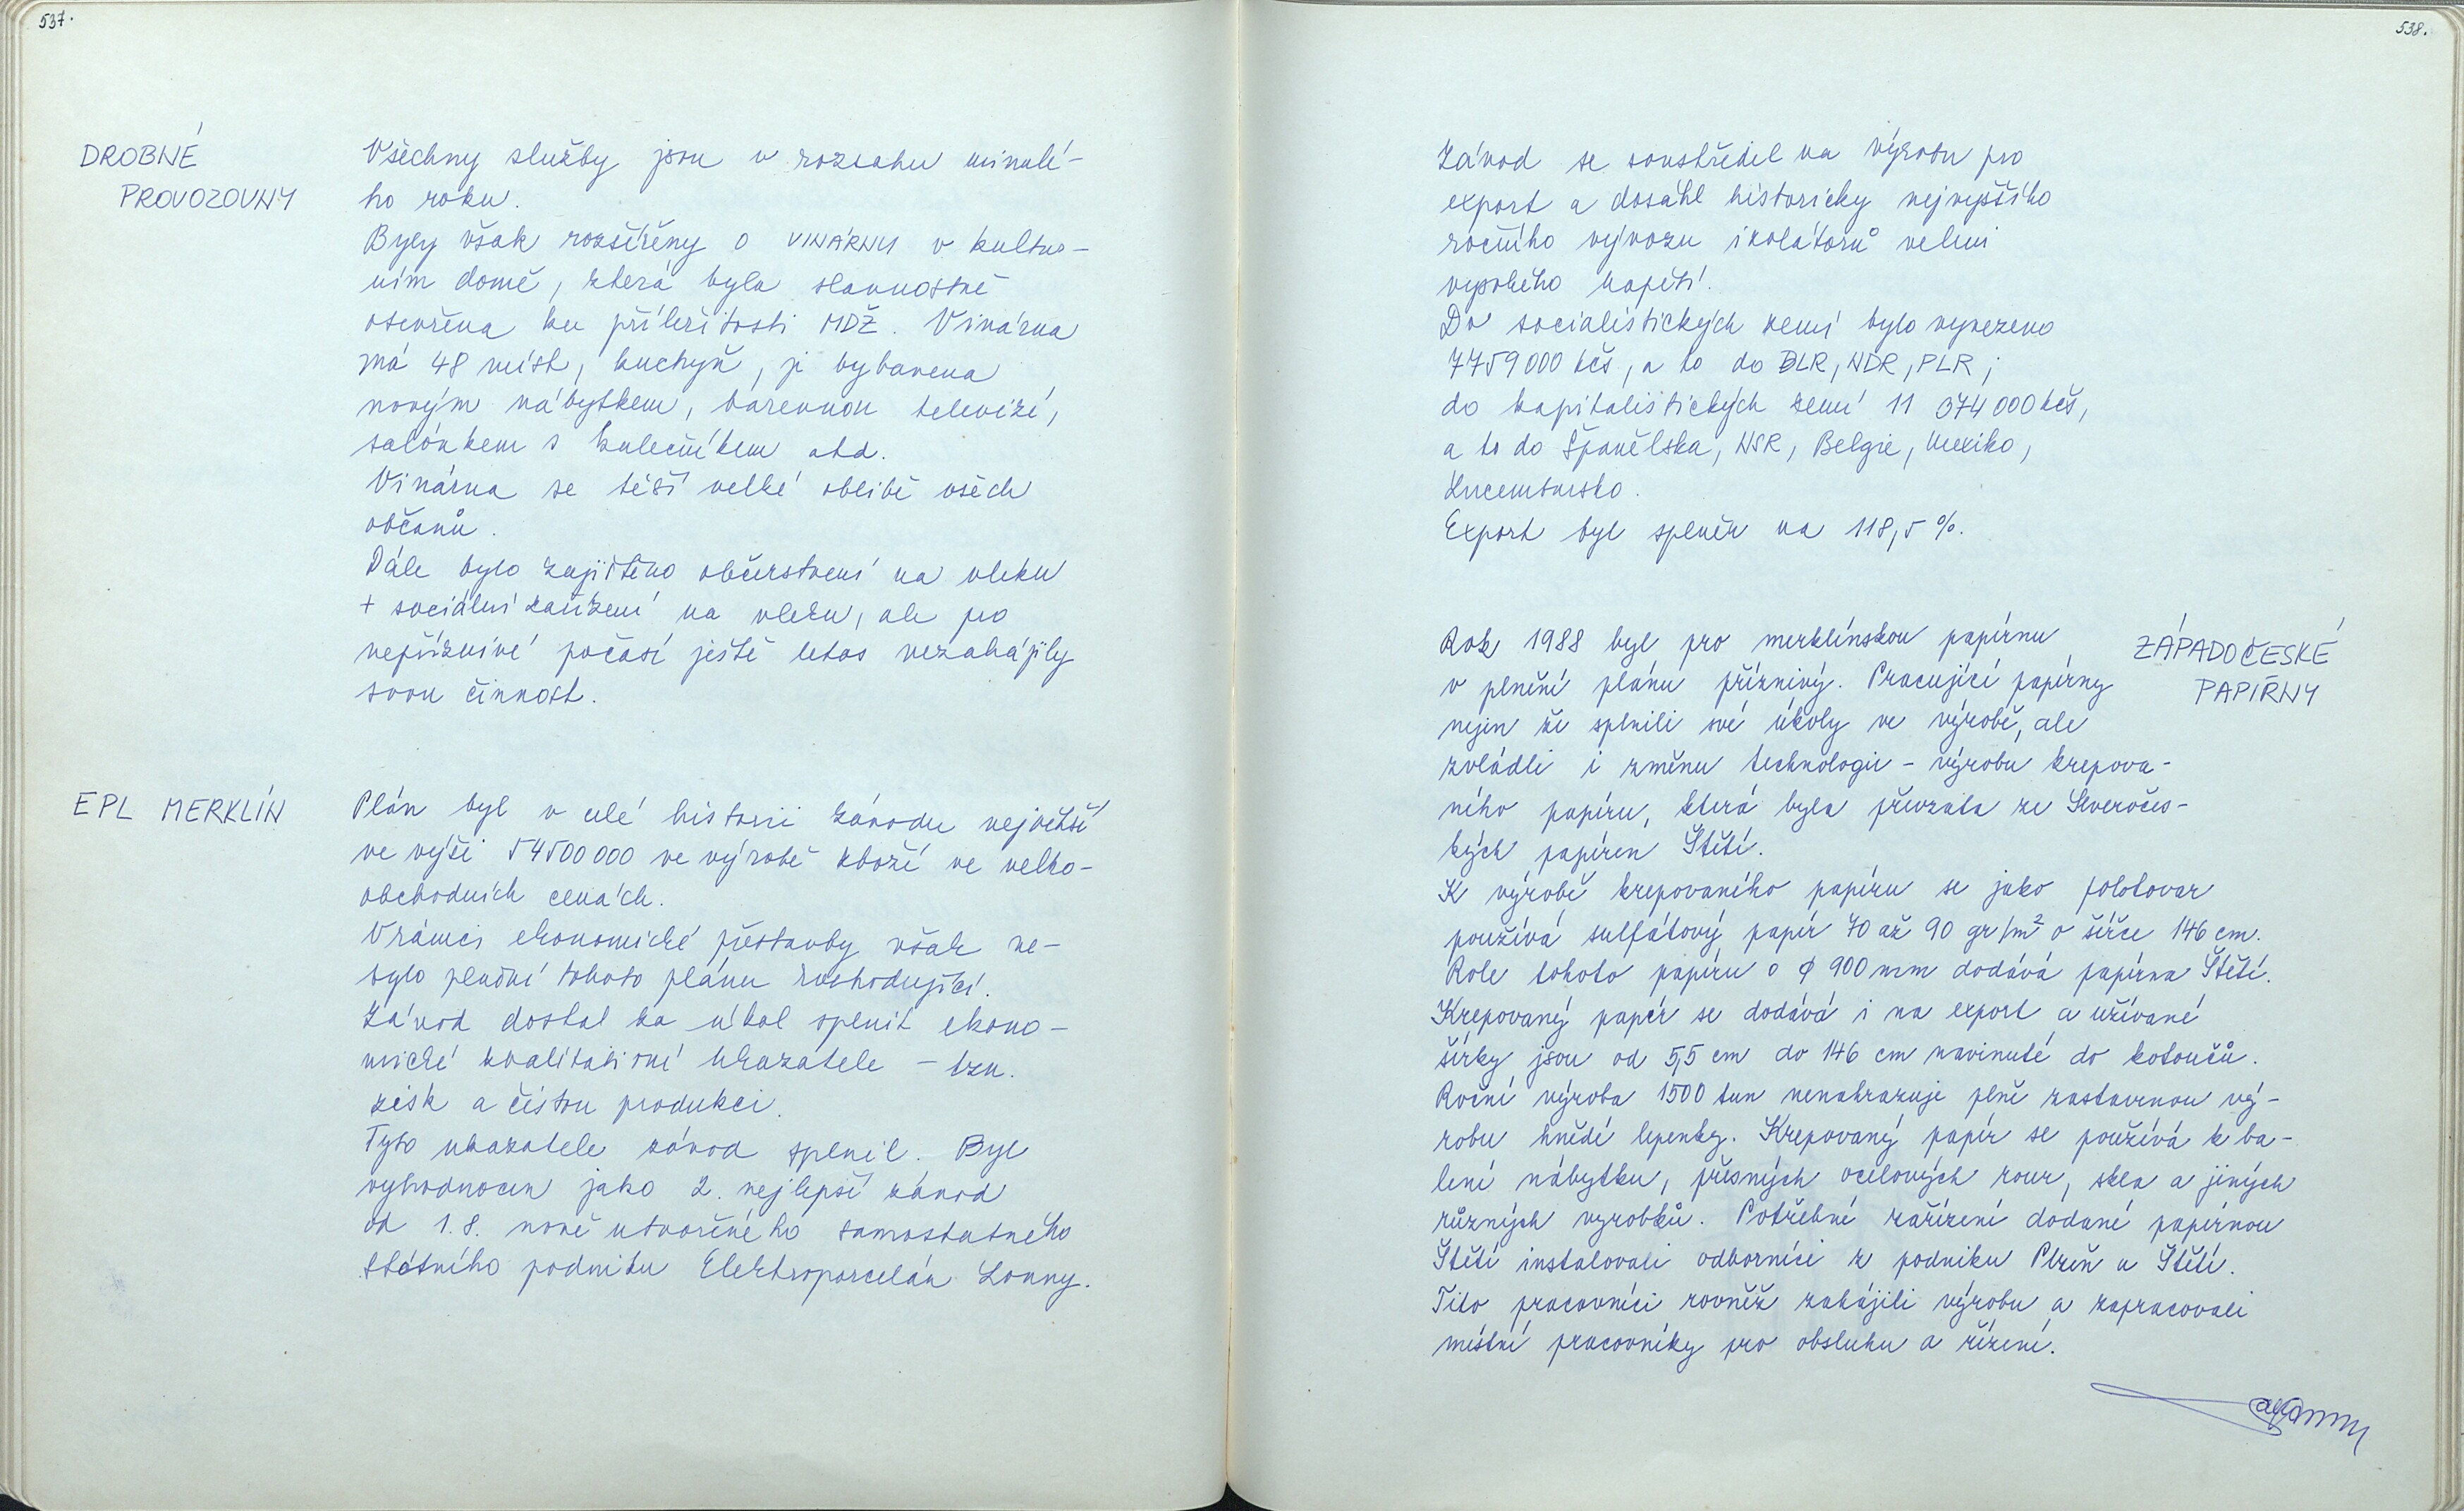 537.
DROBNÉ
PROVOZOVNY
Všechny služby jsou v rozsahu minulé-
ho roku.
Byly však rozšířeny o VINÁRNU v kultur-
ním domě, která byla slavnostně
otevřena ku příležitosti MDŽ. Vinárna
má 48 míst, kuchyň, je vybavena
novým nábytkem, barevnou televizí,
salónkem s kulečníkem atd.
Vinárna se těší velké oblibě všech
občanů.
Dále bylo zajištěno občerstvení na vleku
+ sociální zařízení na vleku, ale pro
nepříznivé počasí ještě letos nezahájily
svou činnost.
EPL MERKLÍN
Plán byl v celé historii závodu největší
ve výši 54500000 ve výrobě zboží ve velko-
obchodních cenách.
V rámci ekonomické přestavby však ne-
bylo plnění tohoto plánu rozhodující.
Závod dostal za úkol splnit ekono-
mické kvalitativní ukazatele - tzn.
zisk a čistou produkci.
Tyto ukazatele závod splnil. Byl
vyhodnocen jako 2. nejlepší závod
od 1.8. nově utvořeného samostatného
státního podniku Elektroporcelán Louny.
538.
Závod se soustředil na výrobu pro
export a dosáhl historicky nejvyššího
ročního vývozu izolátorů velmi
vysokého napětí.
Do socialistických zemí bylo vyvezeno
7759000 kčs, a to do BLR, NDR, PLR;
do kapitalistických zemí 11 074000 kčs,
a to do Španělska, NSR, Belgie, Mexiko,
Lucembursko.
Export byl splněn na 118,5 %.
ZÁPADOČESKÉ
PAPÍRNY
Rok 1988 byl pro merklínskou papírnu
v plnění plánu příznivý. Pracující papírny
nejen že splnili své úkoly ve výrobě, ale
zvládli i změnu technologie - výrobu krepova-
ného papíru, která byla převzata ze Severočes-
kých papíren Štětí.
K výrobě krepovaného papíru se jako polotovar
používá sulfátový papír 70 až 90 gr/m² o šířce 146 cm.
Role tohoto papíru o ϕ 900 mm dodává papírna Štětí.
Krepovaný papír se dodává i na export a užívané
šířky jsou od 5,5 cm do 146 cm navinuté do kotoučů.
Roční výroba 1500 tun nenahrazuje plně zastavenou vý-
robu hnědé lepenky. Krepovaný papír se používá k ba-
lení nábytku, přesných ocelových rour, skla a jiných
různých výrobků. Potřebné zařízení dodané papírnou
Štětí instalovali odborníci z podniku Plzeň a Štětí.
Tito pracovníci rovněž zahájili výrobu a zapracovali
místní pracovníky pro obsluhu a řízení.